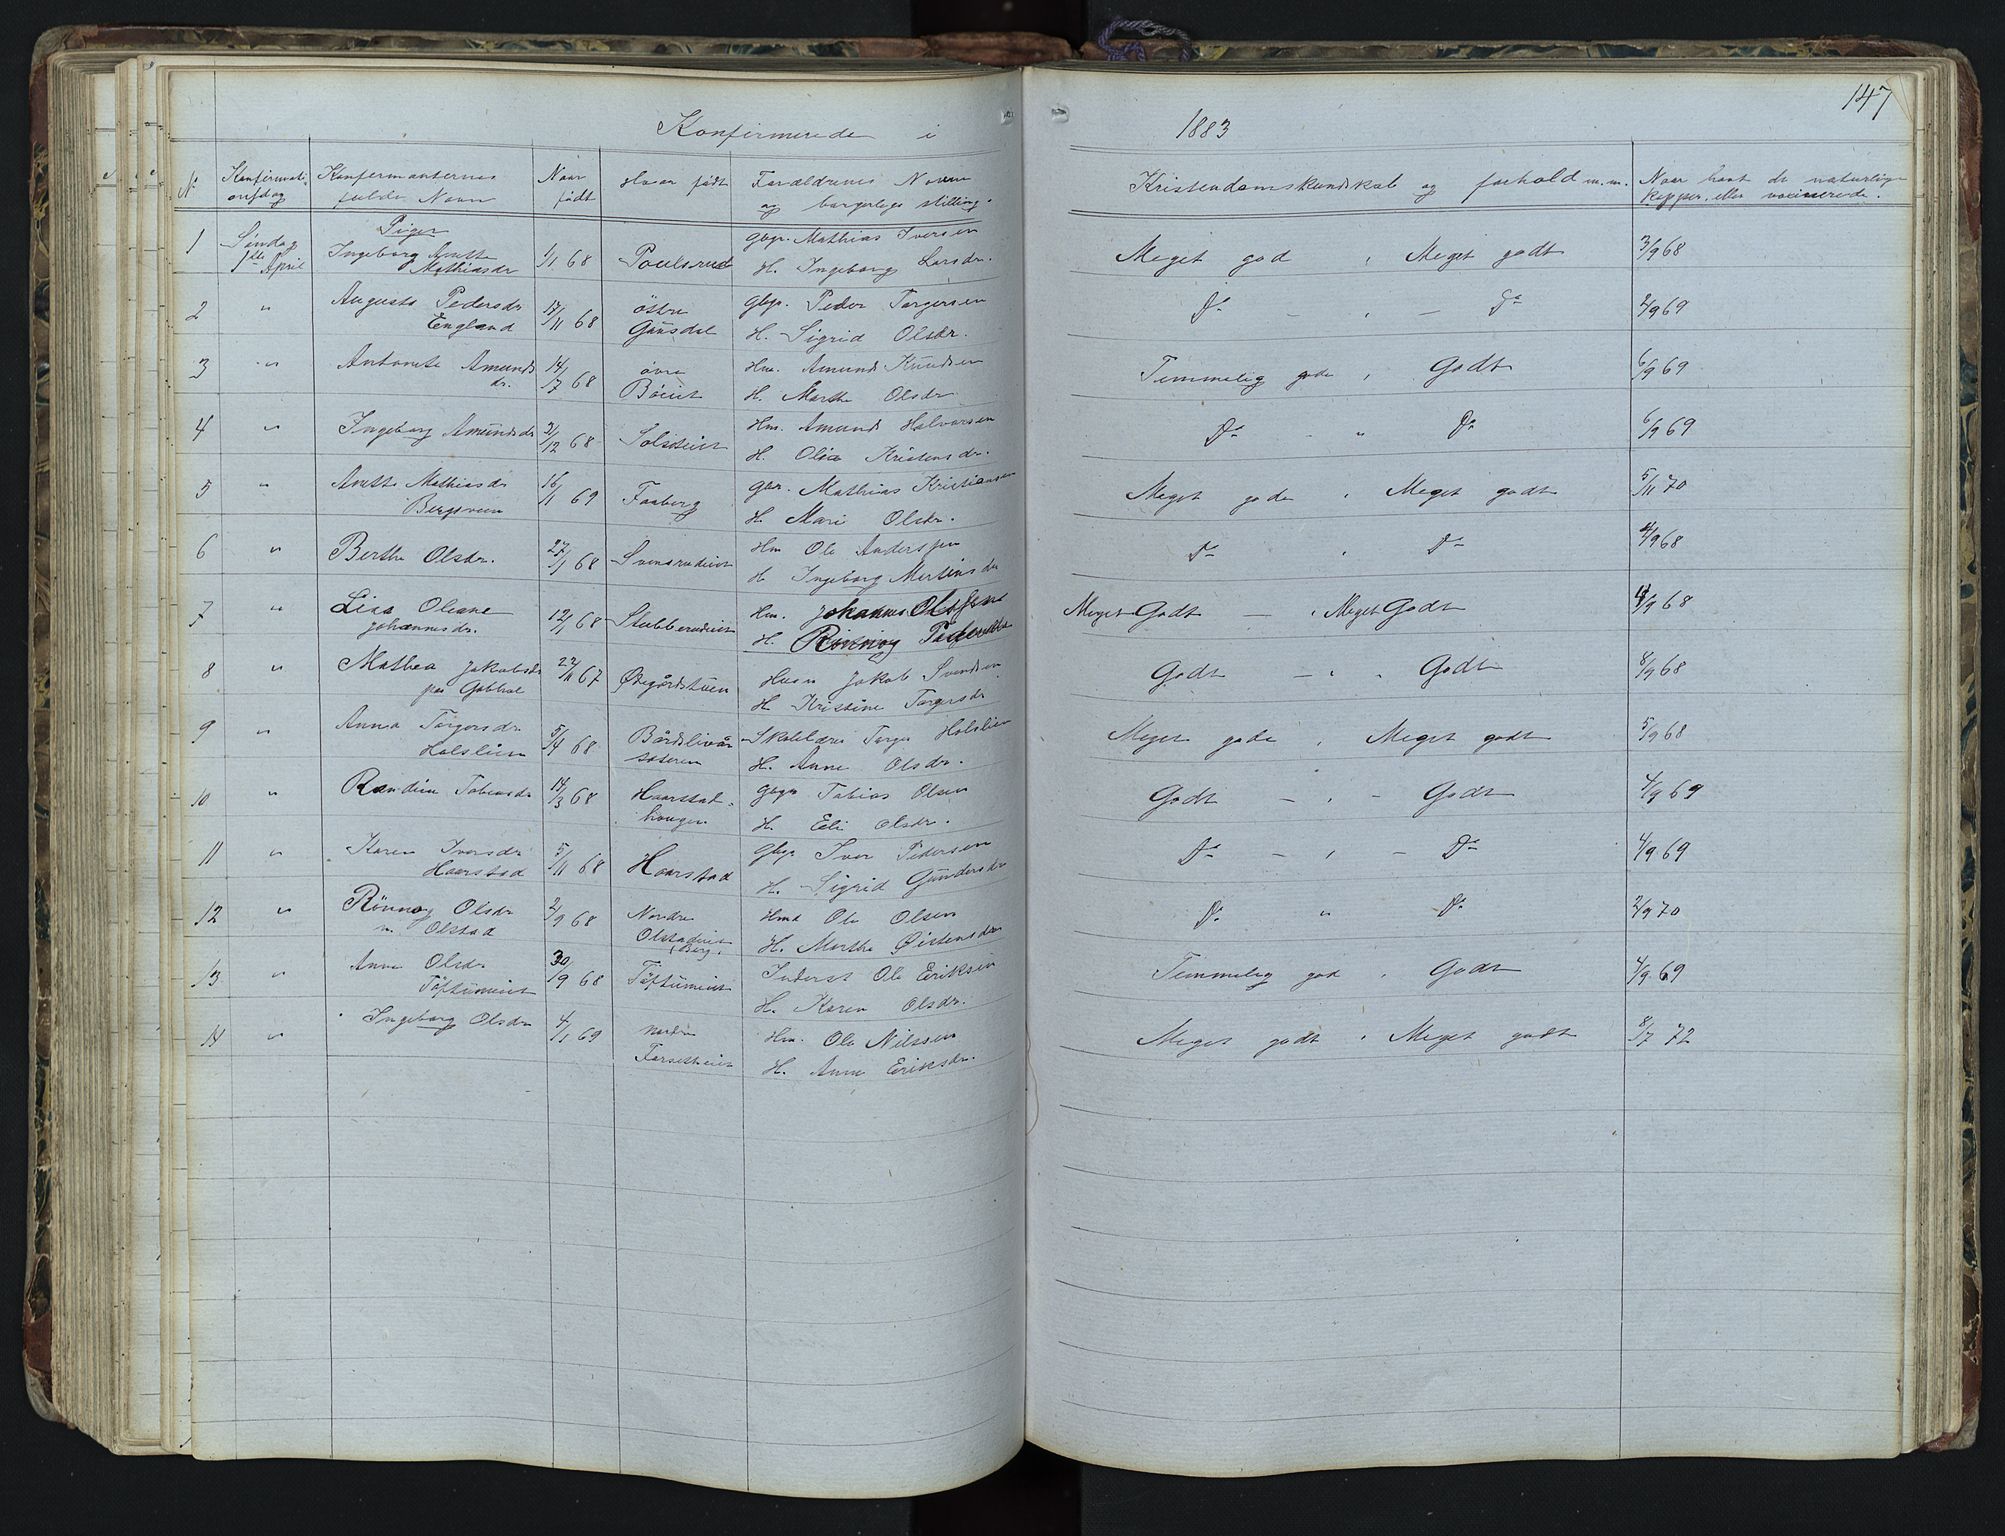 147
Konfirmerede i 1883
No Konfirmati- Konfirmanternes Naar Hvor født Forældrenes Navne Kristendomskundskab og forhold m.m. Naar havt de naturlige
onsdag fulde Navn født og borgerlige stilling. kopper, eller vaccinerede.
Piger
1 Søndag Ingeborg Anette 1/1 68 Poulsrud Gbgr. Mathias Iversen Meget god , Meget godt 3/9 68
1ste April Mathiasdr H. Ingeborg Larsdr.
2 " Augusta Pedersdr 17/11 68 östre Gbgr. Peder Torgersen Do - , - Do 2/9 69
England Gausdal H. Sigrid Olsdr.
3 " Antonette Amunds 14/7 68 övre Hm. Amund Knudsen Temmelig gode , Godt 6/9 69
dr. Böeiet H. Marthe Olsdr
4 " Ingeborg Amundsdr 2/12 68 Solsideiet Hm. Amund Halvorsen Do - " Do 6/9 69
H. Olia Kristensdr.
5 " Anette Mathiasdr 16/1 69 Faaberg Gbr. Mathias Kristiansen Meget gode , Meget godt 5/11 70
Bergsveen H. Mari Olsdr.
6 " Berthe Olsdr. 27/1 68 Svensrudeiet Hm Ole Anderssen Do , Do 4/9 68
H Ingeborg Martinsdr
7 " Lina Oleane 12/1 68 Stubberudeiet Hm. Johannes Olssen Meget Godt - , Meget Godt 4/9 68
Johannesdr. H. Rönnog Pedersdtr
8 " Mathea Jakobsdr 22/11 67 Ødegårdstuen Husm Jakob Svendsen Godt - , , Godt 8/9 68
paa Gabhol H Kristine Torgersdr
9 " Anna Torgersdr 5/4 68 Bårdslivår- Skolelærer Torger Holslien Meget gode , Meget godt 5/9 68
Holslien sæteren H. Anne Olsdr.
10 " Randine Tobiasdr 14/3 68 Haarstad- Gbgr Tobias Olsen Godt - , - Godt 4/9 69
haugen H. Eli Olsdr.
11 " Karen Iversdr 5/11 68 Haarstad Gbgr Iver Pedersen Do - , - Do 4/9 69
Haarstad H. Sigrid Gundersdr
12 " Rönnog Olsdr 2/9 68 Nordre Hmd Ole Olsen Do " Do 2/9 70
n. Olstad Olstadeiet H. Marthe Øistensdr
(Berg.
13 " Anne Olsdr 30/9 68 Töftumeiet Inderst Ole Eriksen Temmelig god , Godt 4/9 69
Töftumeiet H. Karen Olsdr.
14 " Ingeborg Olsdr 4/1 69 nordre Hm. Ole Nilssen Meget godt , Meget godt 8/7 72
Forsetheiet H. Anne Eriksdr.